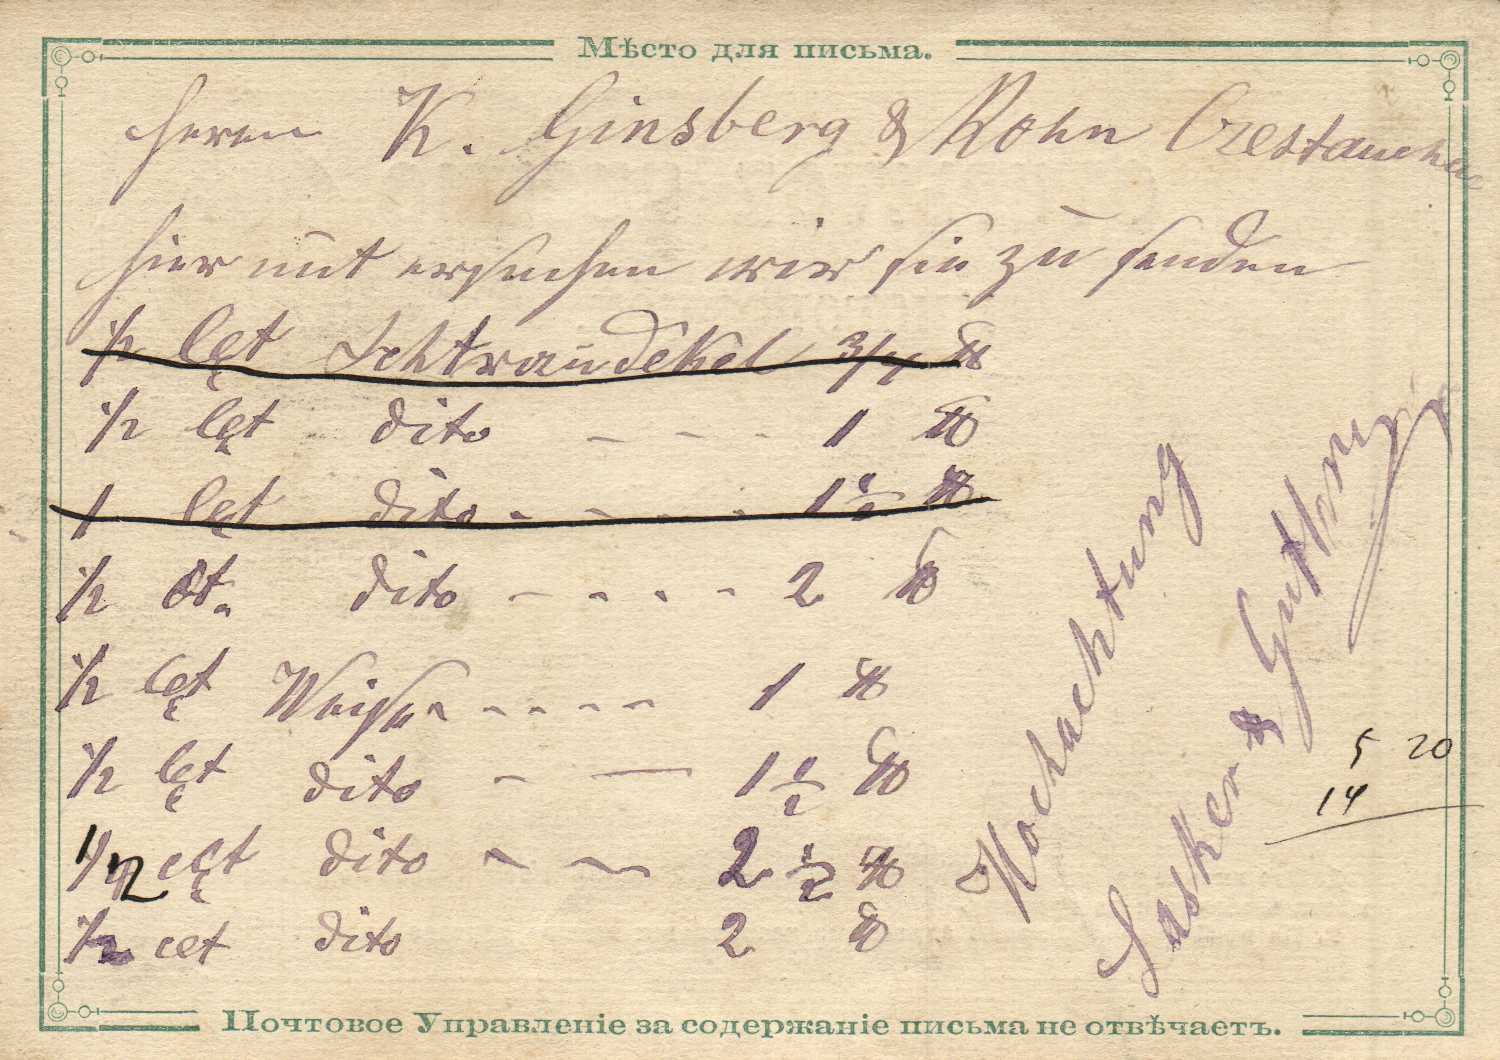 Мѣсто для письма.
Herrn K. Ginsberg & Kohn Czestauchau
hier mit ersuchen wir sie zu senden
1/2 Cęt 3/4 ℔
1/2 Cęt dito - - - 1 ℔
1 Cęt dito - - - - 1 1/2 ℔
1/2 Ct. dito - - - - 2 ℔
1/2 Cęt Weiße - - - - 1 ℔
1/2 Cęt dito - — 1 1/2 ℔
1/2 Cęt dito - - - 2 1/2 ℔
1/2 Cet dito 2 ℔
Hochachtung
Lasker &
5 20
14
Почтовое Управленіе за содержаніе письма не отвѣчаетъ.